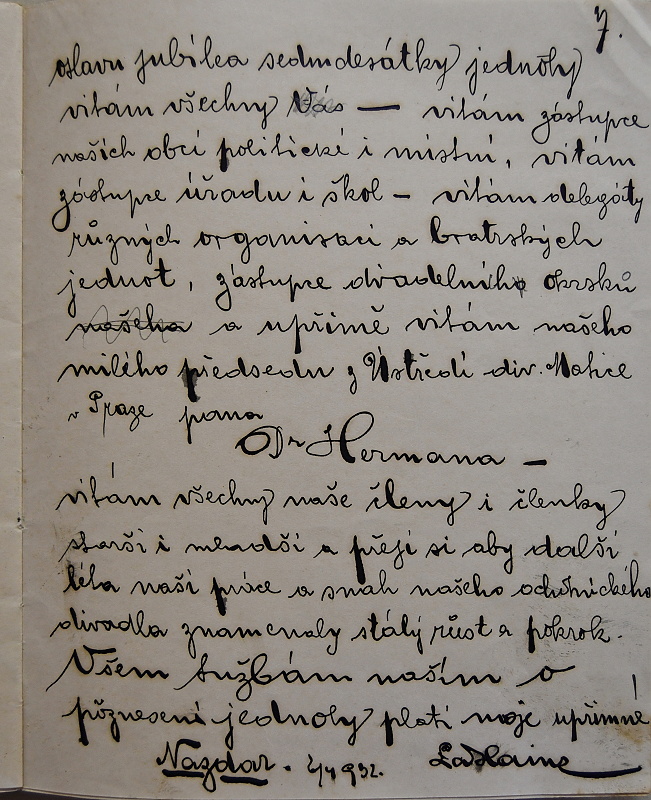 7.
oslavu jubilea sedmdesátky jednoty
vítám všechny Vás — vítám zástupce
našich obcí politické i místní, vítám
zástupce úřadu i škol – vítám delegáty
různých organisací a bratrských
jednot, zástupce divadelního okrsků
našeho a upřímě vítám našeho
milého předsedu z Ústředí div. Matice
v Praze pana
Dr Hermana –
vítám všechny naše členy i členky
starší i mladší a přeji si aby další
léta naší práce a snah našeho ochotnického
divadla znamenaly stálý růst a pokrok.
Všem tužbám naším o
pôznesení jednoty platí moje upřímné
Nazdar. 2/4 932.